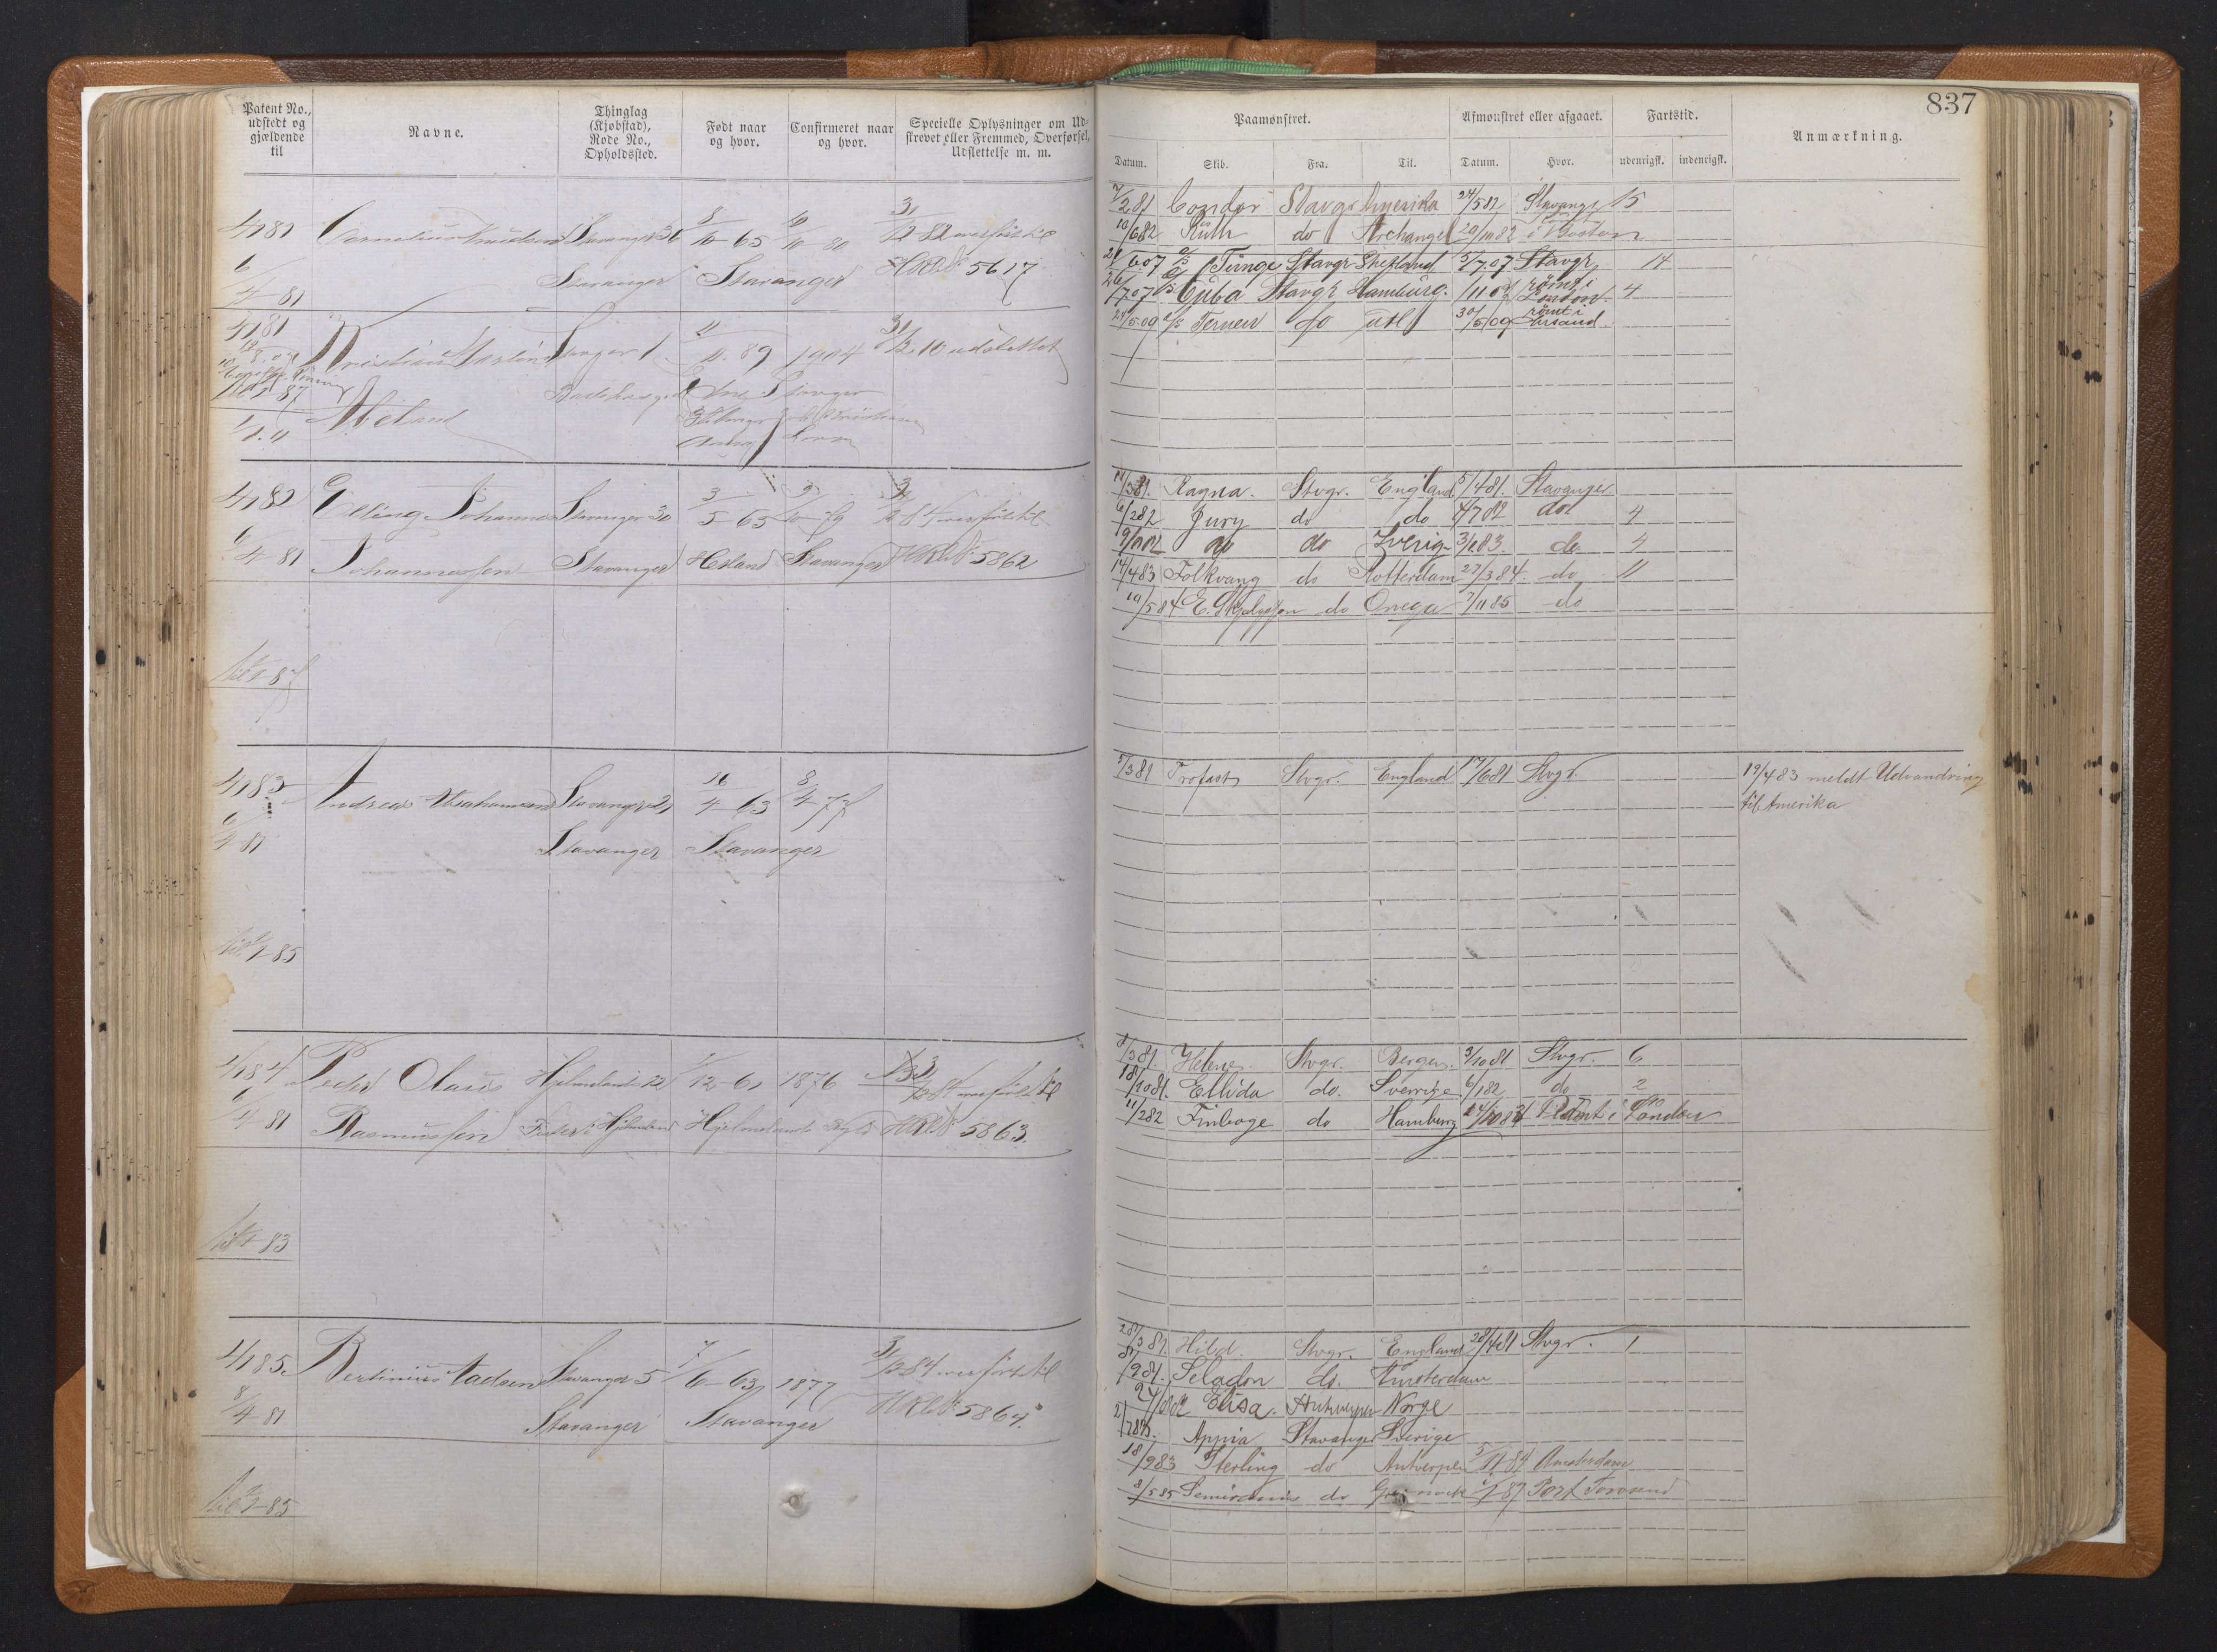 837
Patent No., udstedt og gjældende til
Navne.
Thinglag (Kjøbstad), Rode No., Opholdssted.
Født naar og hvor.
Confirmeret naar og hvor.
Specielle Oplysninger om Udskrevet eller Fremmed, Overførsel, Udslettelse m. m.
Paamønstret.
Afmønstret eller afgaaet.
Fartstid.
Anmærkning.
Datum.
Skib.
Fra.
Til.
Datum.
Hvor.
udenrigsk.
indenrigsk.
4181 Cornelius Knudsen Stavanger 36 8/10-65 10/10 80 3/12 82 overført til
6/4-81 Stavanger Stavanger HRUNo 5617
4181 Kristian Martin Stavgr 1 11/11.89 1904 31/12.10 udslettet
til 87
Meland
4182 Elling Johannes Stavanger 30 3/5-65 5/10-79 3/12 84 overført til
6/4 81 Johannessen Stavanger Hetland Stavanger HRUNo 5862
til 1/1 87
4183 Andreas Abrahamsen Stavanger 21 16/4-63 8/4-77
6/4-81 Stavanger Stavanger
til 1/1-85
4184 Peder Olaus Hjelmeland 12 1/12-61 1876 3/12 84 overført til
6/4 81 Rasmussen Fister i Hjelmeland Hjelmeland HRUNo 5863.
til 1/1-83
4185. Bertinius Aadsen Stavanger 5 7/6-63 1877 3/12 84 overført til
8/4-81 Stavanger Stavanger HRUNo 5864.
til 1/1-85
7/2 81 Condor Stavgr Amerika 24/5 82 Stavanger 15
10/6 82 Ruth do Archangel 20/10 82 rømt i Boston
21/6.07 Tunge Stavgr Shetland 5/7.07 Stavgr 14
26/7.07 Cuba Stavgr Hamburg. /11 07 rømt i London. 4
24/5.09 Ternen do Utl 30/5 09 rømt i Krsand.
11/3 81. Ragna. Stvgr. England 5/4 81. Stavanger
6/2 82 Jury do do 4/7 82 do 4
do do Sverig 3/1 83. do 4
14/4 83 Folkvang do Rotterdam 27/3 84. do 11
10/5 84 do Onega 7/11 85 do
5/3 81 Trofast Stvgr. England 17/6 81 Stvgr. 19/4 83 meldt Udvandring
til Amerika
8/3 81. Helene. Stvgr. Bergen. 3/10 81 Stvgr. 6
18/10 81. Ellida do. Sverrige 6/1 82 do 2
11/2 82 Finboge do Hamburg 24/10 82 Rømt i London
28/3 81. Hild. Stvgr. England 28/4 81 Stvgr. 1
/9 81. Seladon do. Amsterdam
Elisa. Antwerpen Norge
Appia Stavanger Sverige
18/9 83 Sterling do Antwerpen 5/11 84 Amsterdam
8/5 85 Semiramis do Greenock /1 87 Port Townsend